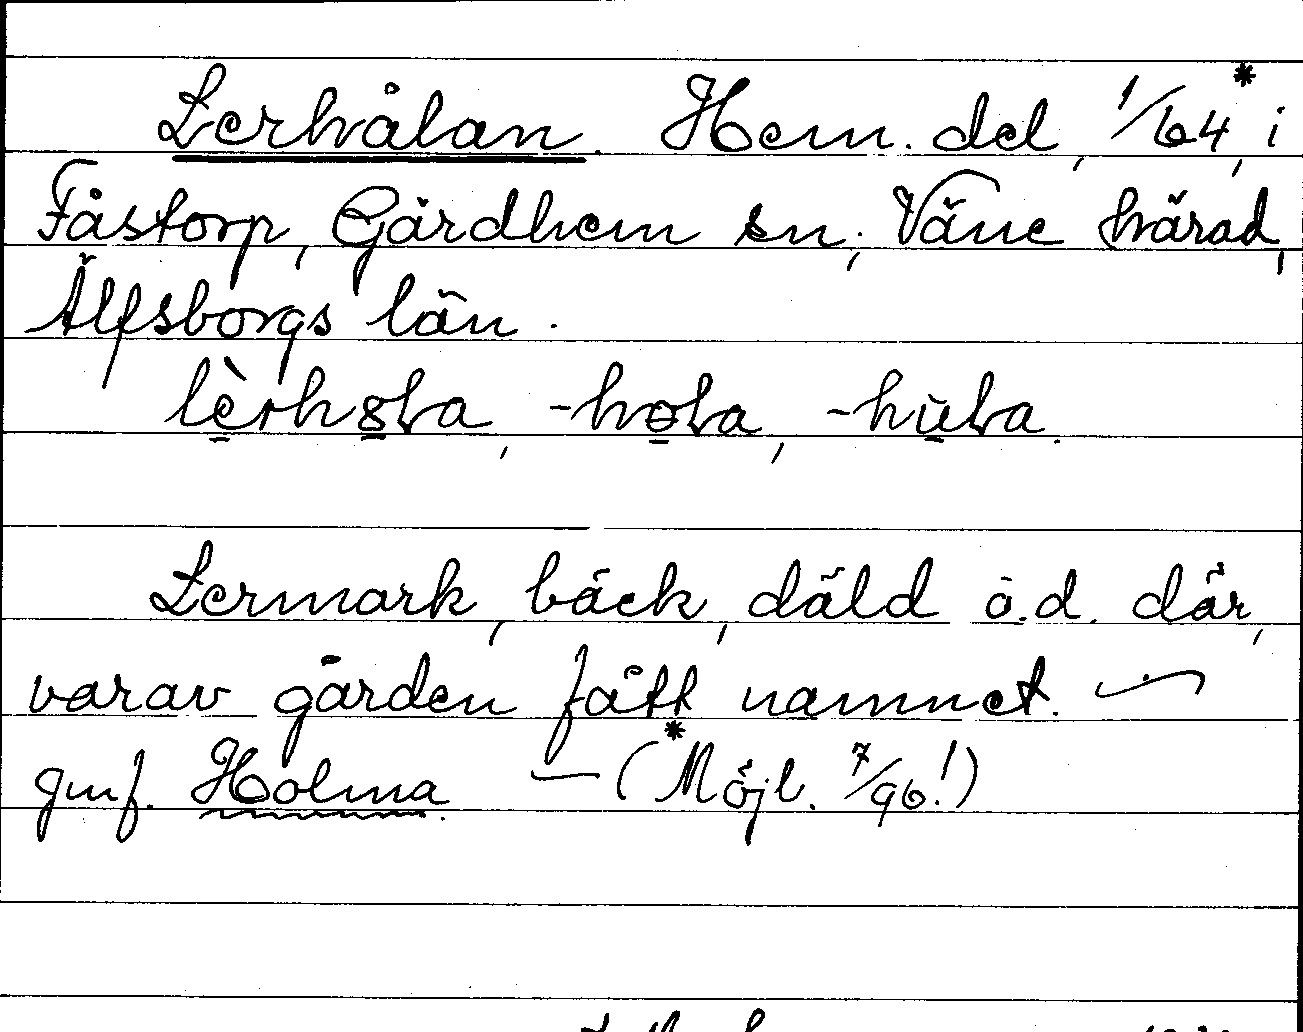 Lerhålan. Hem. del, 1/64*, i
Fåstorp, Gärdhem sn, Väne härad,
Älfsborgs län.
lèrhola, -hola, -hula.
Lermark, bäck, däld o.d. där,
varav gården fått namnet. —
Jmf. Holma. — (* Möjl. 7/96!)